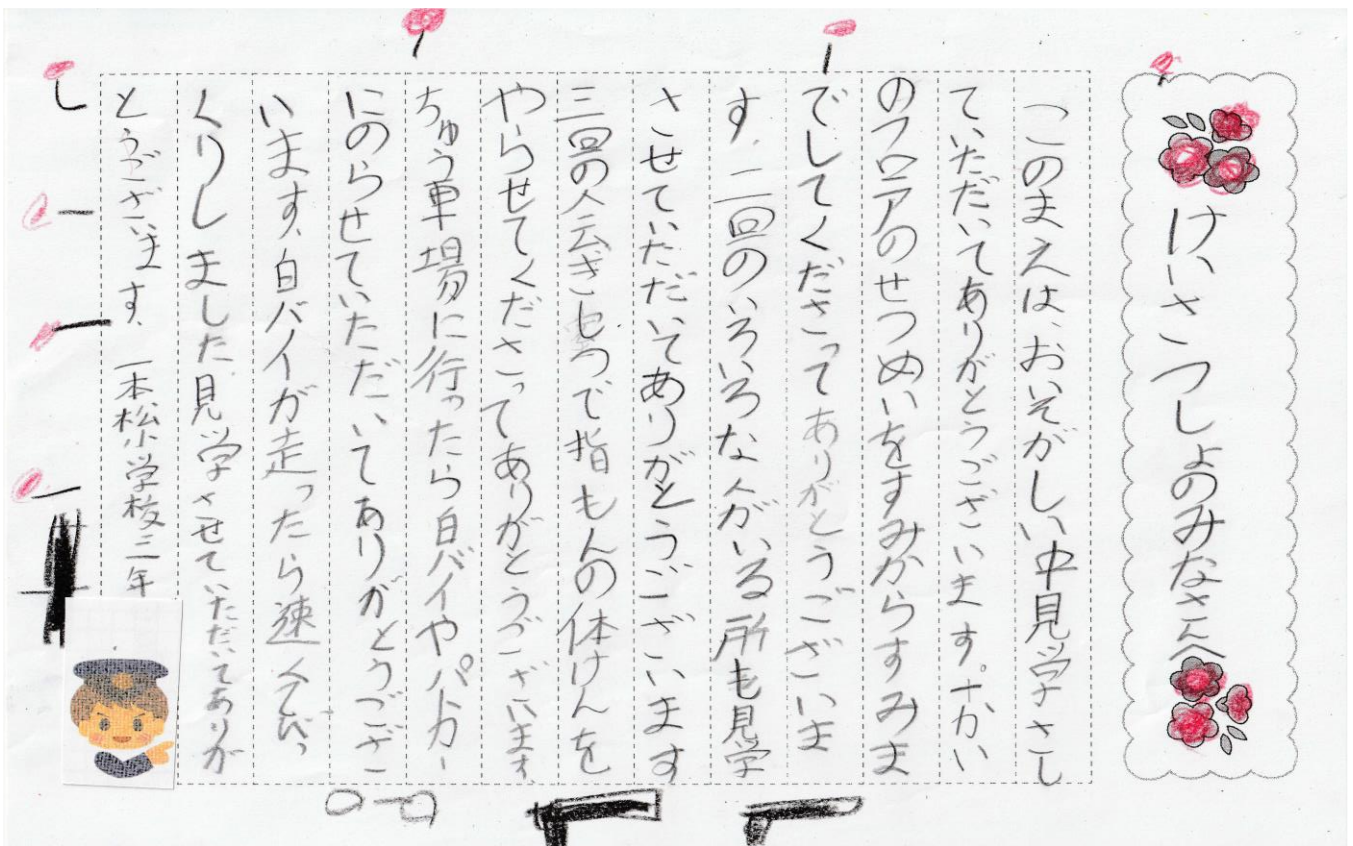 けいさつしょのみなさんへ
このまえは、おいそがしい中見学さし
ていただいてありがとうございます。十かい
のフロアのせつめいをすみからすみま
でしてくださってありがとうございま
す、二回のいろいろな人がいる所も見学
させていただいてありがとうございます
三回の会ぎしつで指もんの体けんを
やらせてくださってありがとうございます、
ちゅう車場に行ったら白バイやパトカー
にのらせていただいてありがとうござ
います、白バイが走ったら速くてびっ
くりしました、見学させていただいてありが
とうございます、 一本松小学校三年